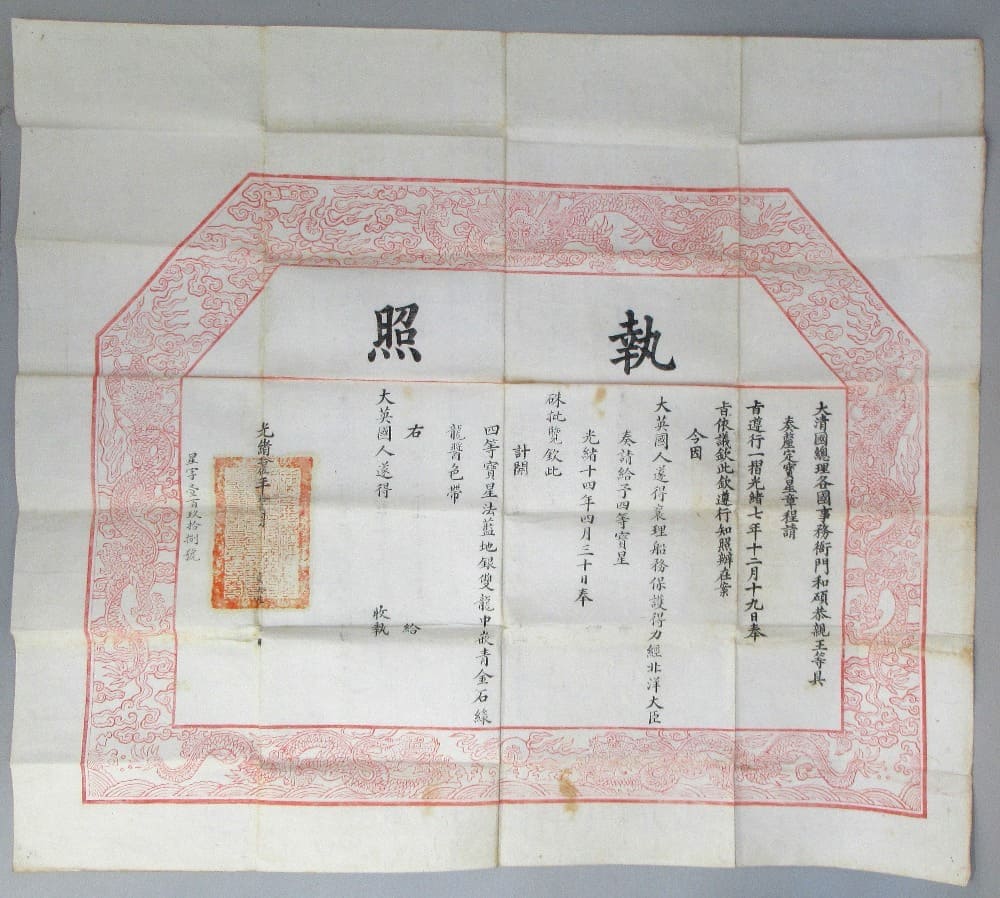 執照
大清國總理各國事務衙門和碩恭親王等具
奏釐定寶星章程請
旨遵行一摺光緒七年十二月十九日奉
旨依議欽此欽遵行知照辦在案
今因
大英國人遂得襄理船務保護得力經北洋大臣
奏請給予四等寶星
光緒十四年四月三十日奉
硃批覽欽此
計開
四等寶星法藍地銀雙龍中嵌青金石綠
龍醬色帶
右 給
大英國人遂得 收執
光緒 年 月
星字壹百玖拾捌號